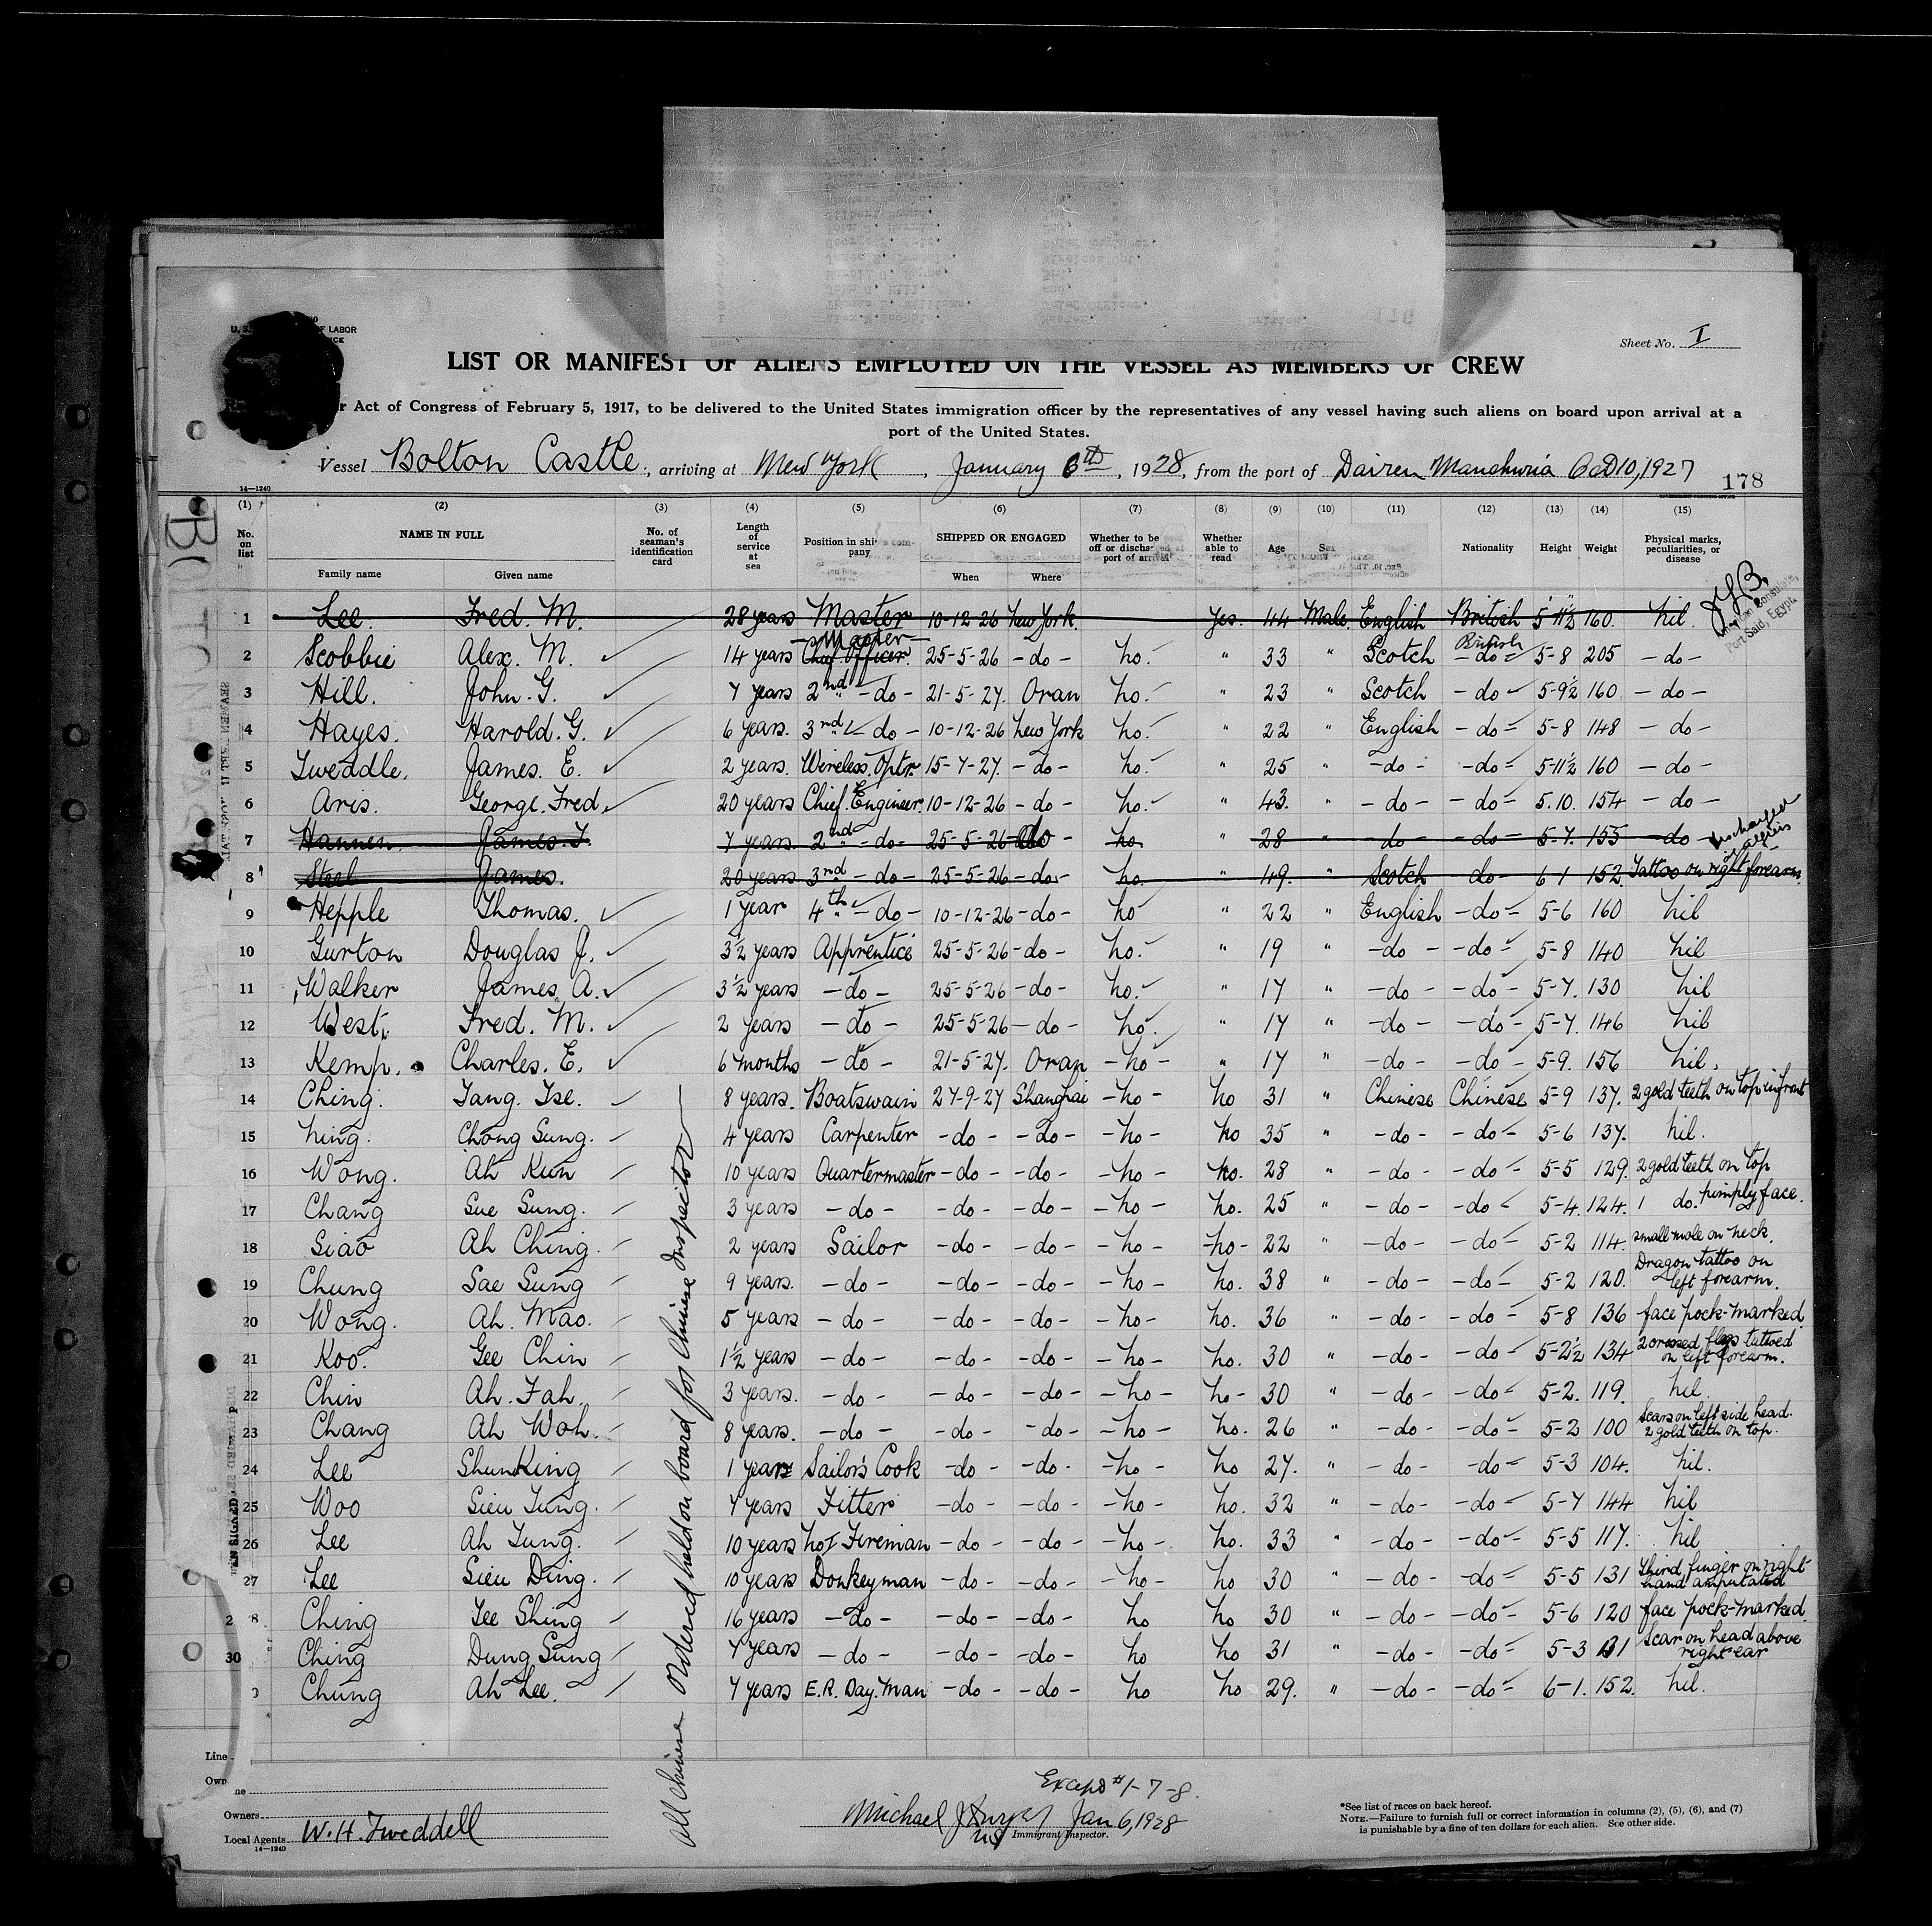 OF LABOR
Sheet No. I
LIST OR MANIFEST OF ALIENS EMPLOYED ON THE VESSEL AS MEMBERS OF CREW
Act of Congress of February 5, 1917, to be delivered to the United States immigration officer by the representatives of any vessel having such aliens on board upon arrival at a
port of the United States.
Vessel Bolton Castle, arriving at New York, January 6th, 1928, from the port of Dairen Manchuria Oct 10, 1927
14—1240
178
(1) (2) (3) (4) (5) (6) (7) (8) (9) (10) (11) (12) (13) (14) (15)
No. on list NAME IN FULL No. of seaman's identification card Length of service at sea Position in ship's company SHIPPED OR ENGAGED Whether to be off or discharged at port of arrival Whether able to read Age Sex Nationality Height Weight Physical marks, peculiarities, or disease
Family name Given name When Where
J.L.B.
American Consulate,
Port Said, Egypt.
1 Lee. Fred. M. 28 years Master 10-12-26 New York. Yes. 44 Male. English British 5'11½" 160. Nil.
2 Scobbie Alex. M. 14 years Master Chief Officer. 25-5-26 -do- No. " 33 " Scotch British -do- 5-8 205 -do-
3 Hill. John. G. 7 years 2nd -do- 21-5-27. Oran No. " 23 " Scotch -do- 5-9½ 160 -do-
4 Hayes. Harold. G. 6 years. 3rd -do- 10-12-26 New York No. " 22 " English -do- 5-8 148 -do-
5 Tweddle. James. E. 2 years. Wireless. Optr. 15-7-27. -do- No. " 25 " -do- -do- 5-11½ 160 -do-
6 Aris. George. Fred. 20 years Chief. Engineer. 10-12-26 -do- No. " 43. " -do- -do- 5.10. 154 -do-
7 Hannen. James. T. 7 years. 2nd -do- 25-5-26 -do- No. " 28 " do -do- 5-7. 155 -do- discharged Algiers
8 Steel James. 20 years 3rd -do- 25-5-26 -do- No. " 49. " Scotch do- 6-1 152. Tattoo on right forearm.
9 Hepple Thomas. 1 year 4th -do- 10-12-26 -do- No " 22 " English -do- 5-6 160 Nil
10 Gurton Douglas J. 3½ years Apprentice 25-5-26 -do- No. " 19 -do- -do- 5-8 140 Nil
11 Walker James. A. 3½ years -do- 25-5-26 -do- No. " 17 " -do- -do- 5-7. 130 Nil
12 West. Fred. M. 2 years -do- 25-5-26 -do- No. " 17 " -do- -do- 5-7. 146 Nil
13 Kemp. Charles. E. 6 months -do- 21-5-27. Oran -No- " 17 " -do- -do- 5-9. 156 Nil.
14 Ching. Tang. Tse. 8 years. Boatswain 27-9-27 Shanghai -No- No 31 " Chinese Chinese 5-9 137. 2 gold teeth on top infront
15 Ning. Chong Sung. 4 years Carpenter -do- -do- -No- No 35 " -do- -do- 5-6 137. Nil.
16 Wong. Ah Kun 10 years Quartermaster -do- -do- -No- No. 28 " -do- -do- 5-5 129. 2 gold teeth on top
17 Chang Sue Sung. 3 years -do- -do- -do- -No- No. 25 " -do- -do- 5-4. 124. 1 do. pimply face.
18 Siao Ah Ching. 2 years Sailor -do- -do- -No- -No- 22 " -do- -do- 5-2 114. small mole on neck.
19 Chung Sae Sung 9 years. -do- -do- -do- -No- No. 38 " -do- -do- 5-2 120. Dragon tattoo on left forearm.
20 Wong. Ah. Mao. 5 years -do- -do- -do- -No- No. 36 " -do- -do- 5-8 136 face pock-marked.
21 Koo. Gee Chin 1½ years -do- -do- -do- -No- No. 30 " -do- -do- 5-2½ 134 2 crossed flags tattooed on left forearm.
22 Chin Ah. Fah. 3 years. -do- -do- -do- -No- No- 30 " -do- -do- 5-2. 119. Nil.
23 Chang Ah Woh. 8 years. -do- -do- -do- -No- No. 26 " -do- -do- 5-2 100 Scars on left side head. 2 gold teeth on top.
24 Lee Shun King 1 year Sailor's Cook -do- -do- -No- No 27. " -do- -do- 5-3 104. Nil.
25 Woo Sieu Tung. 7 years Fitter -do- -do- -No- No. 32 " -do- -do- 5-7 144 Nil
26 Lee Ah Tung. 10 years No1 Fireman -do- -do- -No- No. 33 " -do- -do- 5-5 117. Nil
27 Lee Sieu Ding. 10 years Donkeyman -do- -do- -No- No 30 " -do- -do- 5-5 131 Third finger on right hand amputated
28 Ching Tee Shing 16 years -do- -do- -do- No No 30 " -do- -do- 5-6 120 face pock-marked.
30 Ching Dung Sung 7 years -do- -do- -do- No No 31 " -do- -do- 5-3 131 Scar on head above right ear
Chung Ah Lee. 7 years E.R. Day. Man -do- -do- No No 29. " -do- -do- 6-1. 152. Nil.
All Chinese Ordered held on board for Chinese Inspector
Line
Owners
Local Agents W. H. Tweddell
14—1240
Except #1-7-8.
Michael J. Jan 6, 1928
Immigrant Inspector.
*See list of races on back hereof.
NOTE.—Failure to furnish full or correct information in columns (2), (5), (6), and (7)
is punishable by a fine of ten dollars for each alien. See other side.